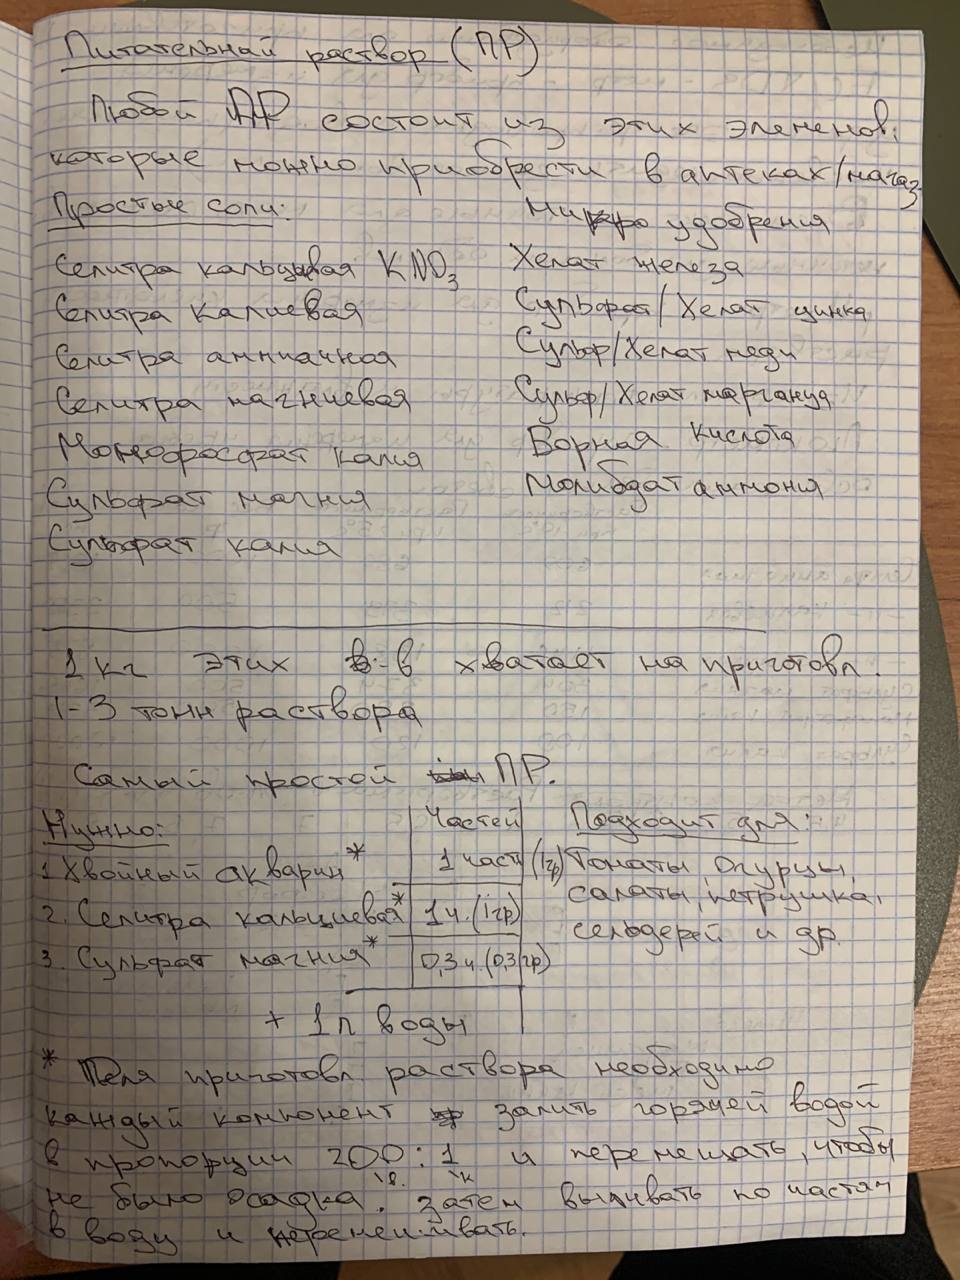 Питательный раствор (ПР)
Любой ПР состоит из этих элеменов,
которые можно приобрести в аптеках/магаз
Простые соли:
Микро удобрения
Селитра кальцивая KNO3
Хелат железа
Селитра калиевая
Сульфат/Хелат цинка
Селитра аммиачная
Сульф/Хелат меди
Селитра магниевая
Сульф/Хелат марганца
Монофосфат калия
Борная кислота
Сульфат магния
Молибдат аммония
Сульфат калия
1 кг этих в-в хватает на приготовл.
1-3 тонн раствора
Самый простой ПР.
Нужно: Частей Подходит для:
1 Хвойный акварин* 1 част (1гр) Томаты, Огурцы,
салаты, петрушка,
2. Селитра кальциевая* 1ч. (1гр)
сельдерей и др.
3. Сульфат магния* 0,3ч. (0,3гр)
+ 1л воды
* Для приготовл раствора необходимо
каждый компонент залить горячей водой
в пропорции 200 : 1 и перемешать, чтобы
не было осадка. Затем выливать по частям
в воду и перемешивать.